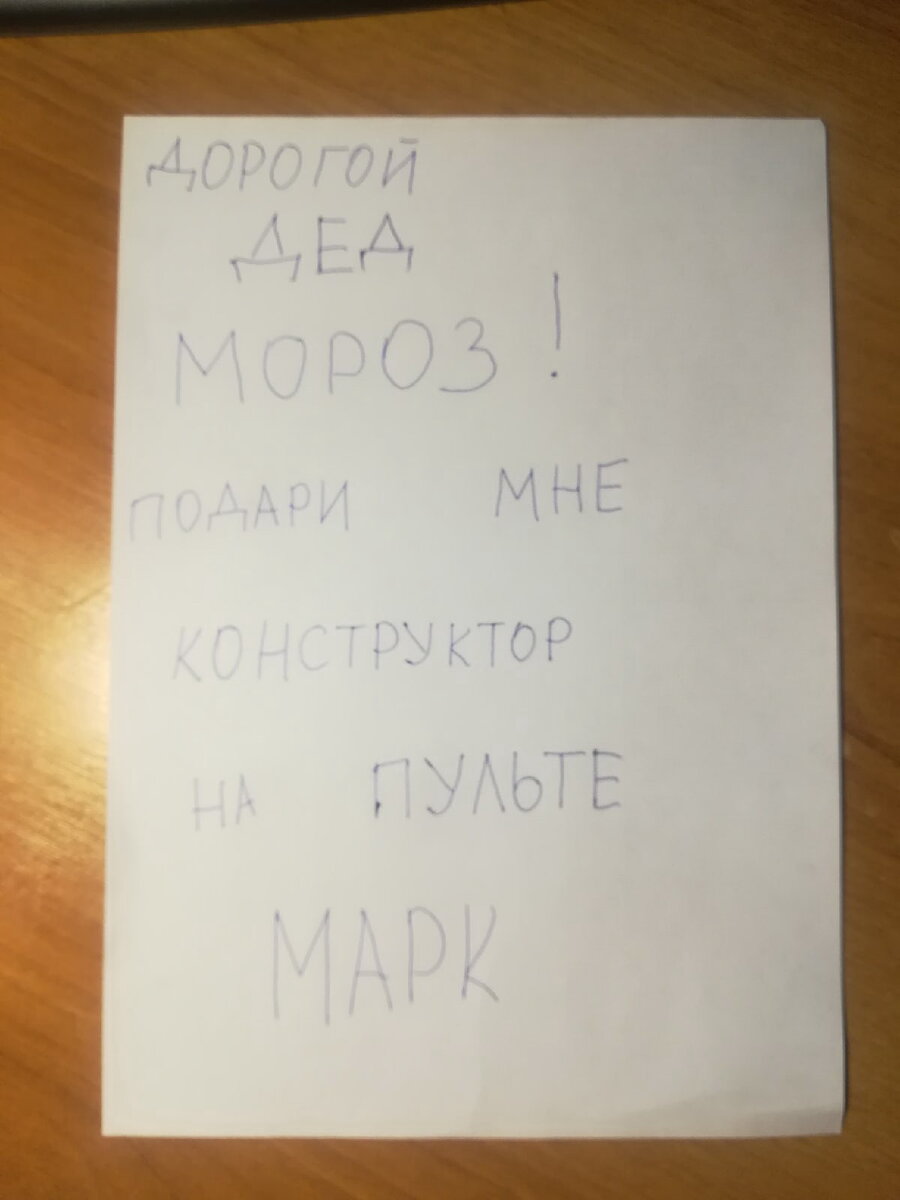 ДОРОГОЙ
ДЕД
МОРОЗ!
ПОДАРИ МНЕ
КОНСТРУКТОР
НА ПУЛЬТЕ
МАРК